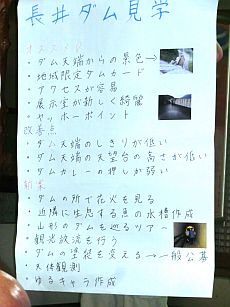 長井ダム見学
オススメ
・ダム天端からの景色→
・地域限定ダムカード
・アクセスが容易
・展示室が新しく綺麗
・ヤッホーポイント
改善点
・ダム天端のしきりが低い
・ダム天端の天望台の高さが低い
・ダムカレーの押しが弱い
新案
・ダムの所で花火を見る
・近隣に生息する魚の水槽作成
・山形のダムを巡るツアー
・観光放流を行う
・ダムの塗装を変える→一般公募
・天体観測
・ゆるキャラ作成